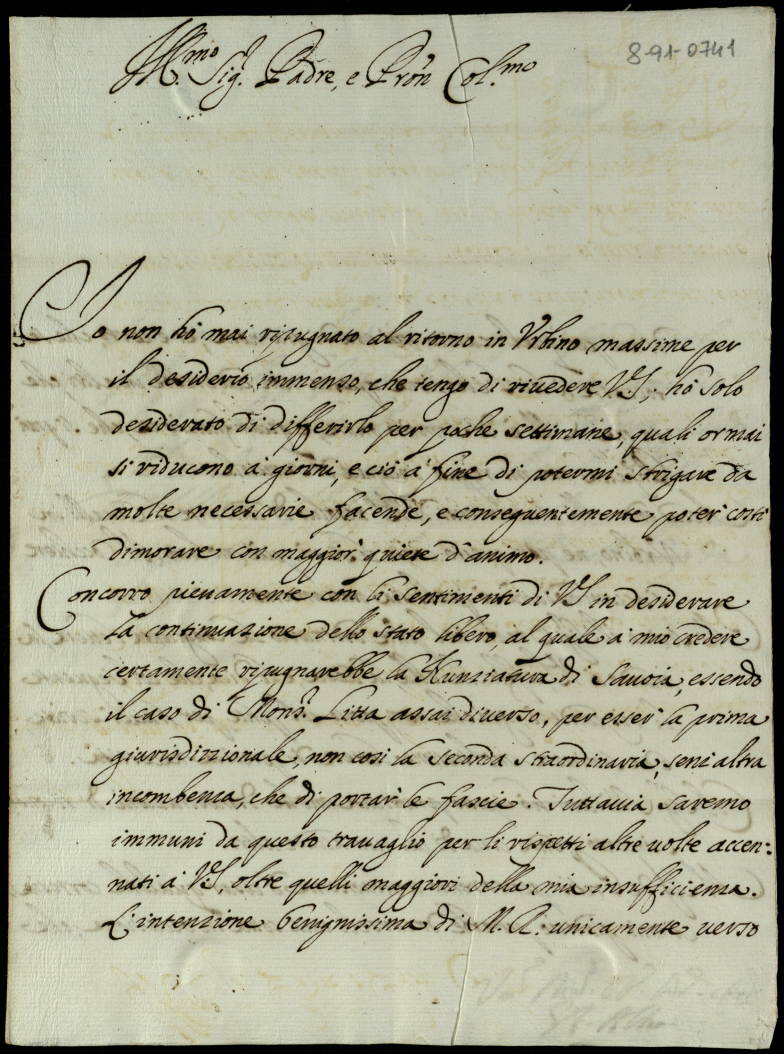 8-91-0741
Ill.mo Sig.r Padre, e Prôn Col.mo
Io non hò mai ripugnato al ritorno in Vrbino massime per
il desiderio immenso, che tengo di rivedere VS, hò solo
desiderato di differirlo per poche settimane, quali ormai
si riducono à giorni, e ciò à fine di potermi strigare da
molte necessarie facende, e conseguentemente poter costì
dimorare con maggior quiete d'animo.
Concorro pienamente con li sentimenti di VS in desiderare
la continuazione dello stato libero, al quale à mio credere
certamente ripugnarebbe la Nunziatura di Sauoia, essendo
il caso di Mons.r Litta assai diuerso, per esser la prima
giurisdizzionale, non così la seconda straordinaria, senz'altra
incombenza, che di portar le fascie. Tuttauia saremo
immuni da questo trauaglio per li rispetti altre uolte accen=
nati à VS, oltre quelli maggiori della mia insufficienza.
L'intenzione benignissima di N. S. unicamente uerso